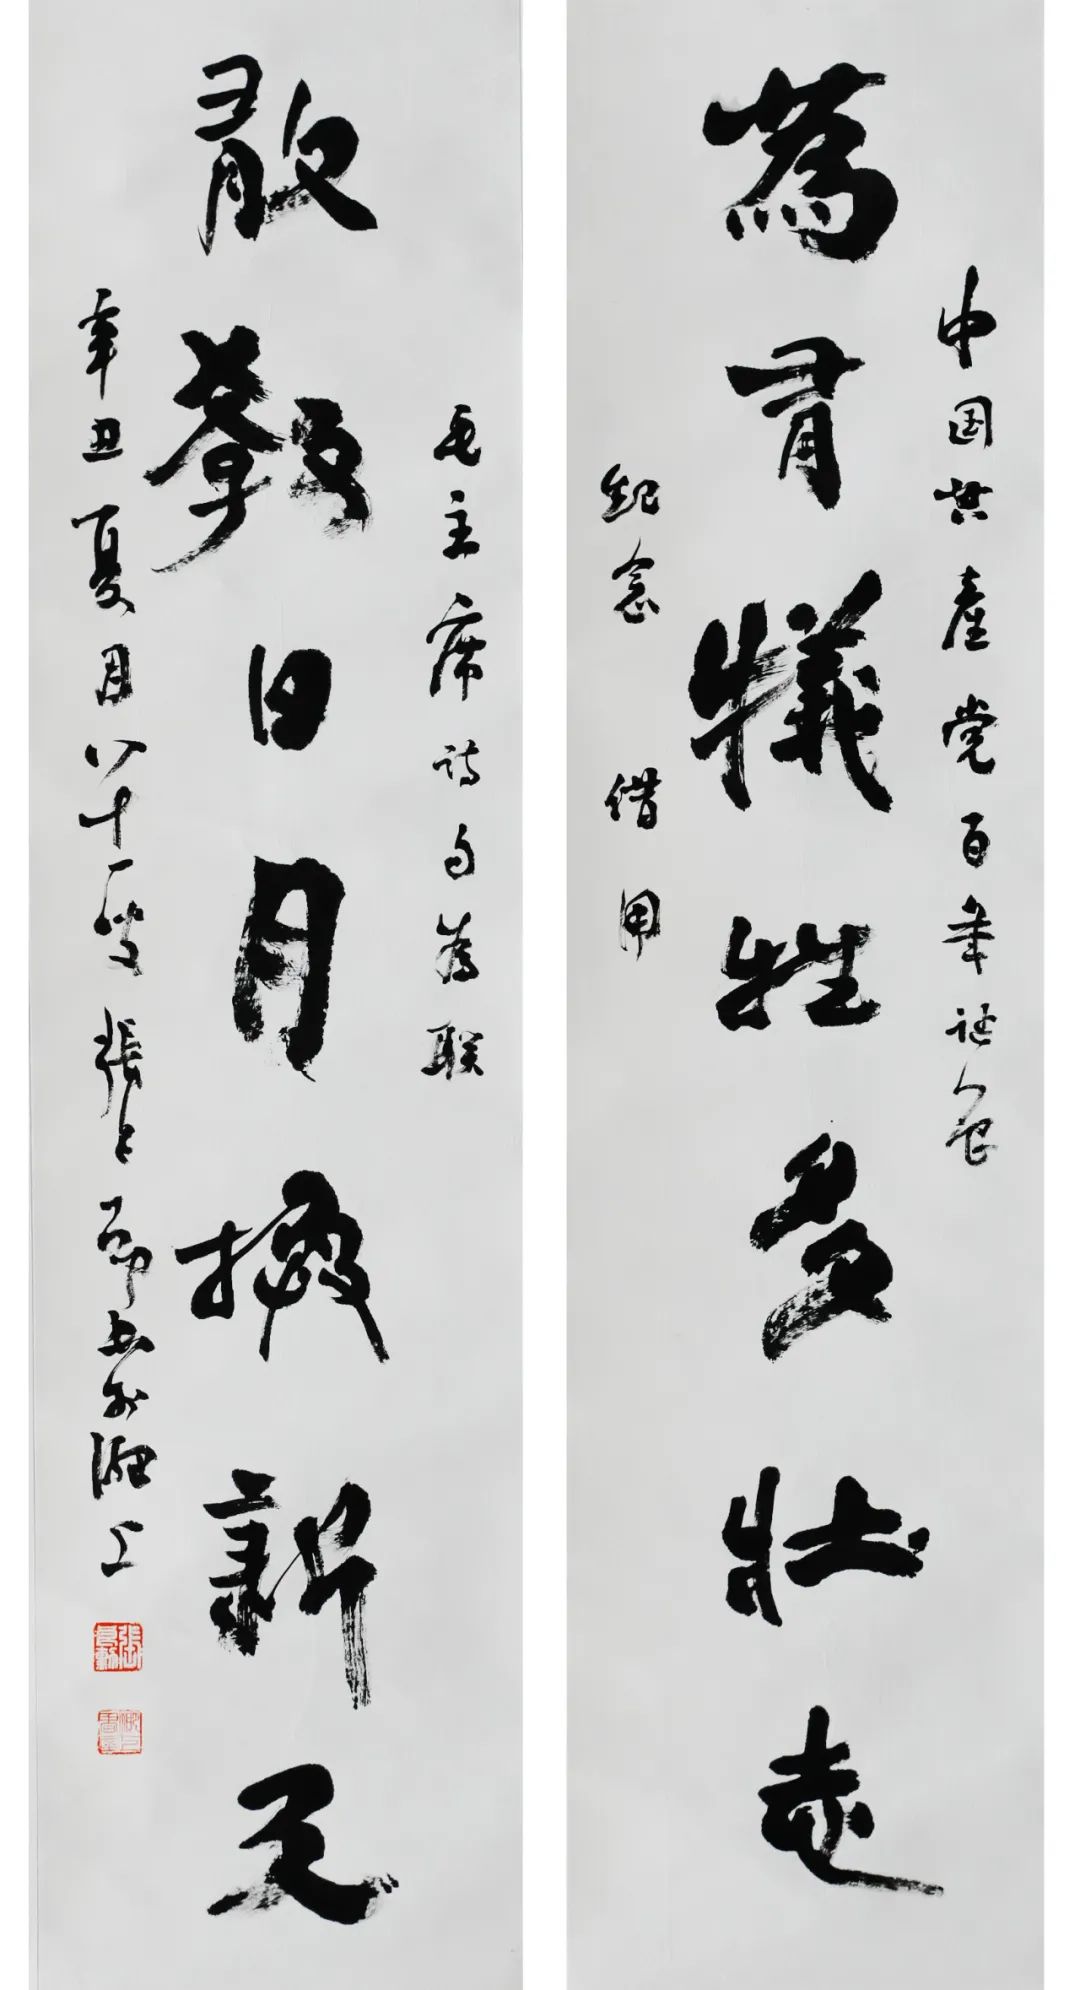 中国共產党百年诞辰
為有犧牲多壯志
纪念 借用
毛主席诗句為联
敢教日月換新天
辛丑夏月八十一叟張 书於 上